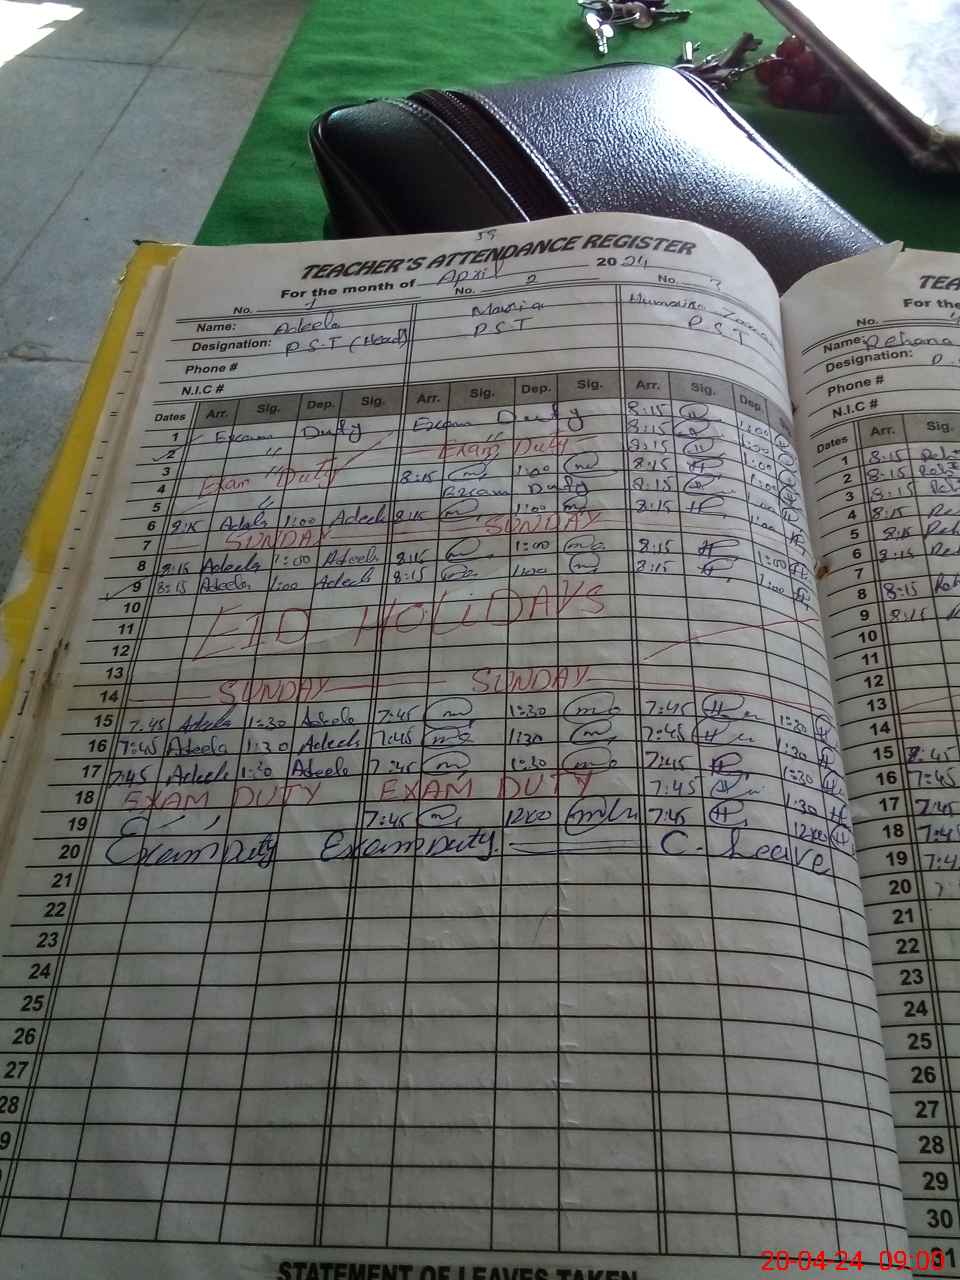 39
TEACHER'S ATTENDANCE REGISTER
For the month of April 2024
No. 1 No. 2 No. 3
Name: Adeela Maria Humaira
Designation: P.S.T (Head) P.S.T P.S.T
Phone #
N.I.C #
Dates Arr. Sig. Dep. Sig. Arr. Sig. Dep. Sig. Arr. Sig. Dep.
1 Exam Duty Exam Duty 8:15 1:00
2 " " Exam Duty 8:15 1:00
3 Exam Duty 8:15 1:00 8:15 1:00
4 " Exam Duty 8:15 1:00
5 8:15 1:00
6 8:15 Adeela 1:00 Adeela 8:15 1:00 8:15 1:00
7 SUNDAY SUNDAY
8 8:15 Adeela 1:00 Adeela 8:15 1:00 8:15 1:00
9 8:15 Adeela 1:00 Adeela 8:15 1:00 8:15 1:00
10
11 EID HOLIDAYS
12
13
14 SUNDAY SUNDAY
15 7:45 Adeela 1:30 Adeela 7:45 1:30 7:45 1:30
16 7:45 Adeela 1:30 Adeela 7:45 1:30 7:45 1:30
17 7:45 Adeela 1:30 Adeela 7:45 1:30 7:45 1:30
18 EXAM DUTY EXAM DUTY 7:45 1:30
19 7:45 12:00 7:45 12:00
20 Exam Duty Exam Duty C. Leave
21
22
23
24
25
26
27
28
9
STATEMENT OF LEAVES TAKEN
TEA
For the
No.
Name: Rehana
Designation:
Phone #
N.I.C #
Dates Arr. Sig.
1 8:15
2 8:15
3 8:15
4 8:15
5 8:15
6 8:15
7
8 8:15
9 8:15
10
11
12
13
14
15 7:45
16 7:45
17 7:45
18 7:45
19 7:4
20
21
22
23
24
25
26
27
28
29
30
31
20-04-24 09:00